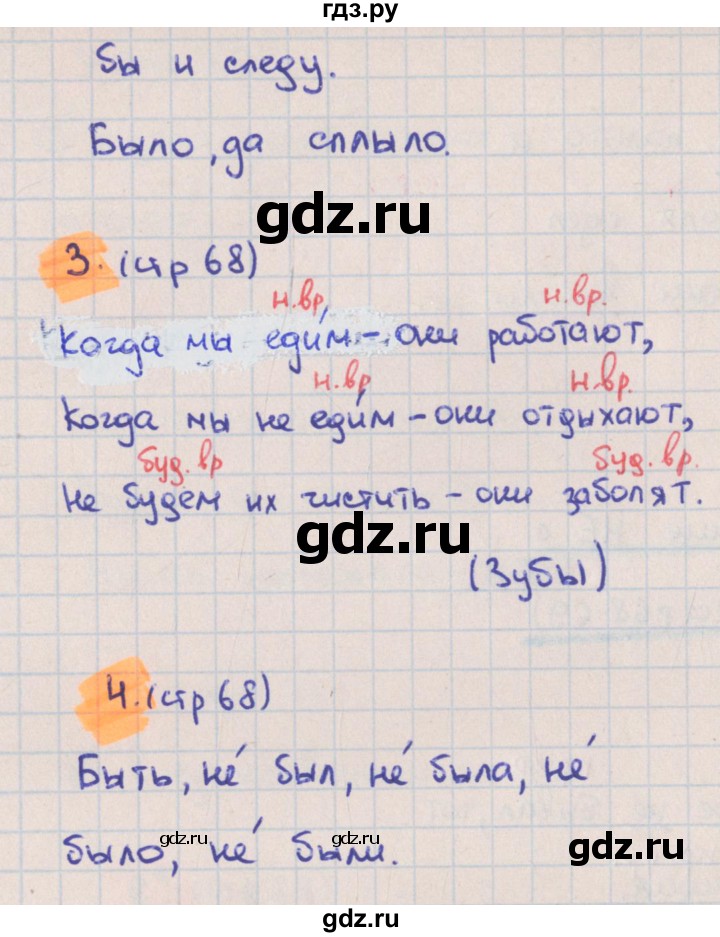 гдз.ру
бы и следу.
Было, да сплыло.
gdz.ru
3. (стр 68)
н.вр. н.вр.
Когда мы еди́м - они работают,
н.вр. н.вр.
Когда мы не еди́м - они отдыхают,
буд. вр буд. вр.
Не будем их чистить - они заболят.
gdz.ru
(Зубы)
4. (стр 68)
Быть, не́ был, не́ была, не́
gdz.ru gdz.ru
было, не́ были.
gdz.ru
gdz.ru